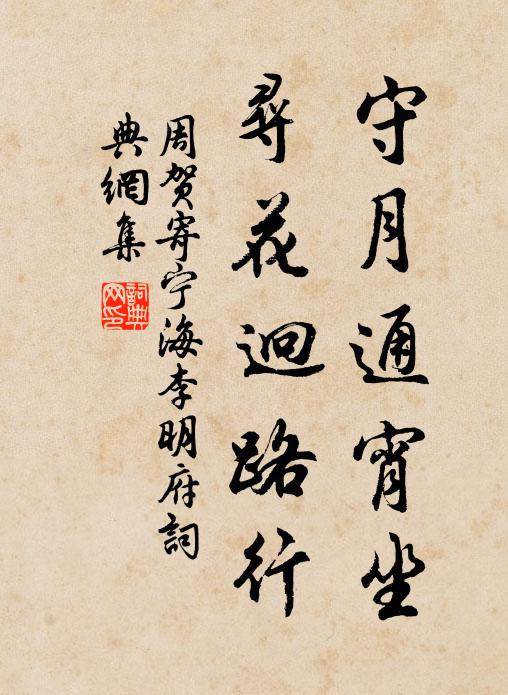 守月通宵坐
尋花迥路行
周贺寄宁海李明府詞
典網集
詞典
网印